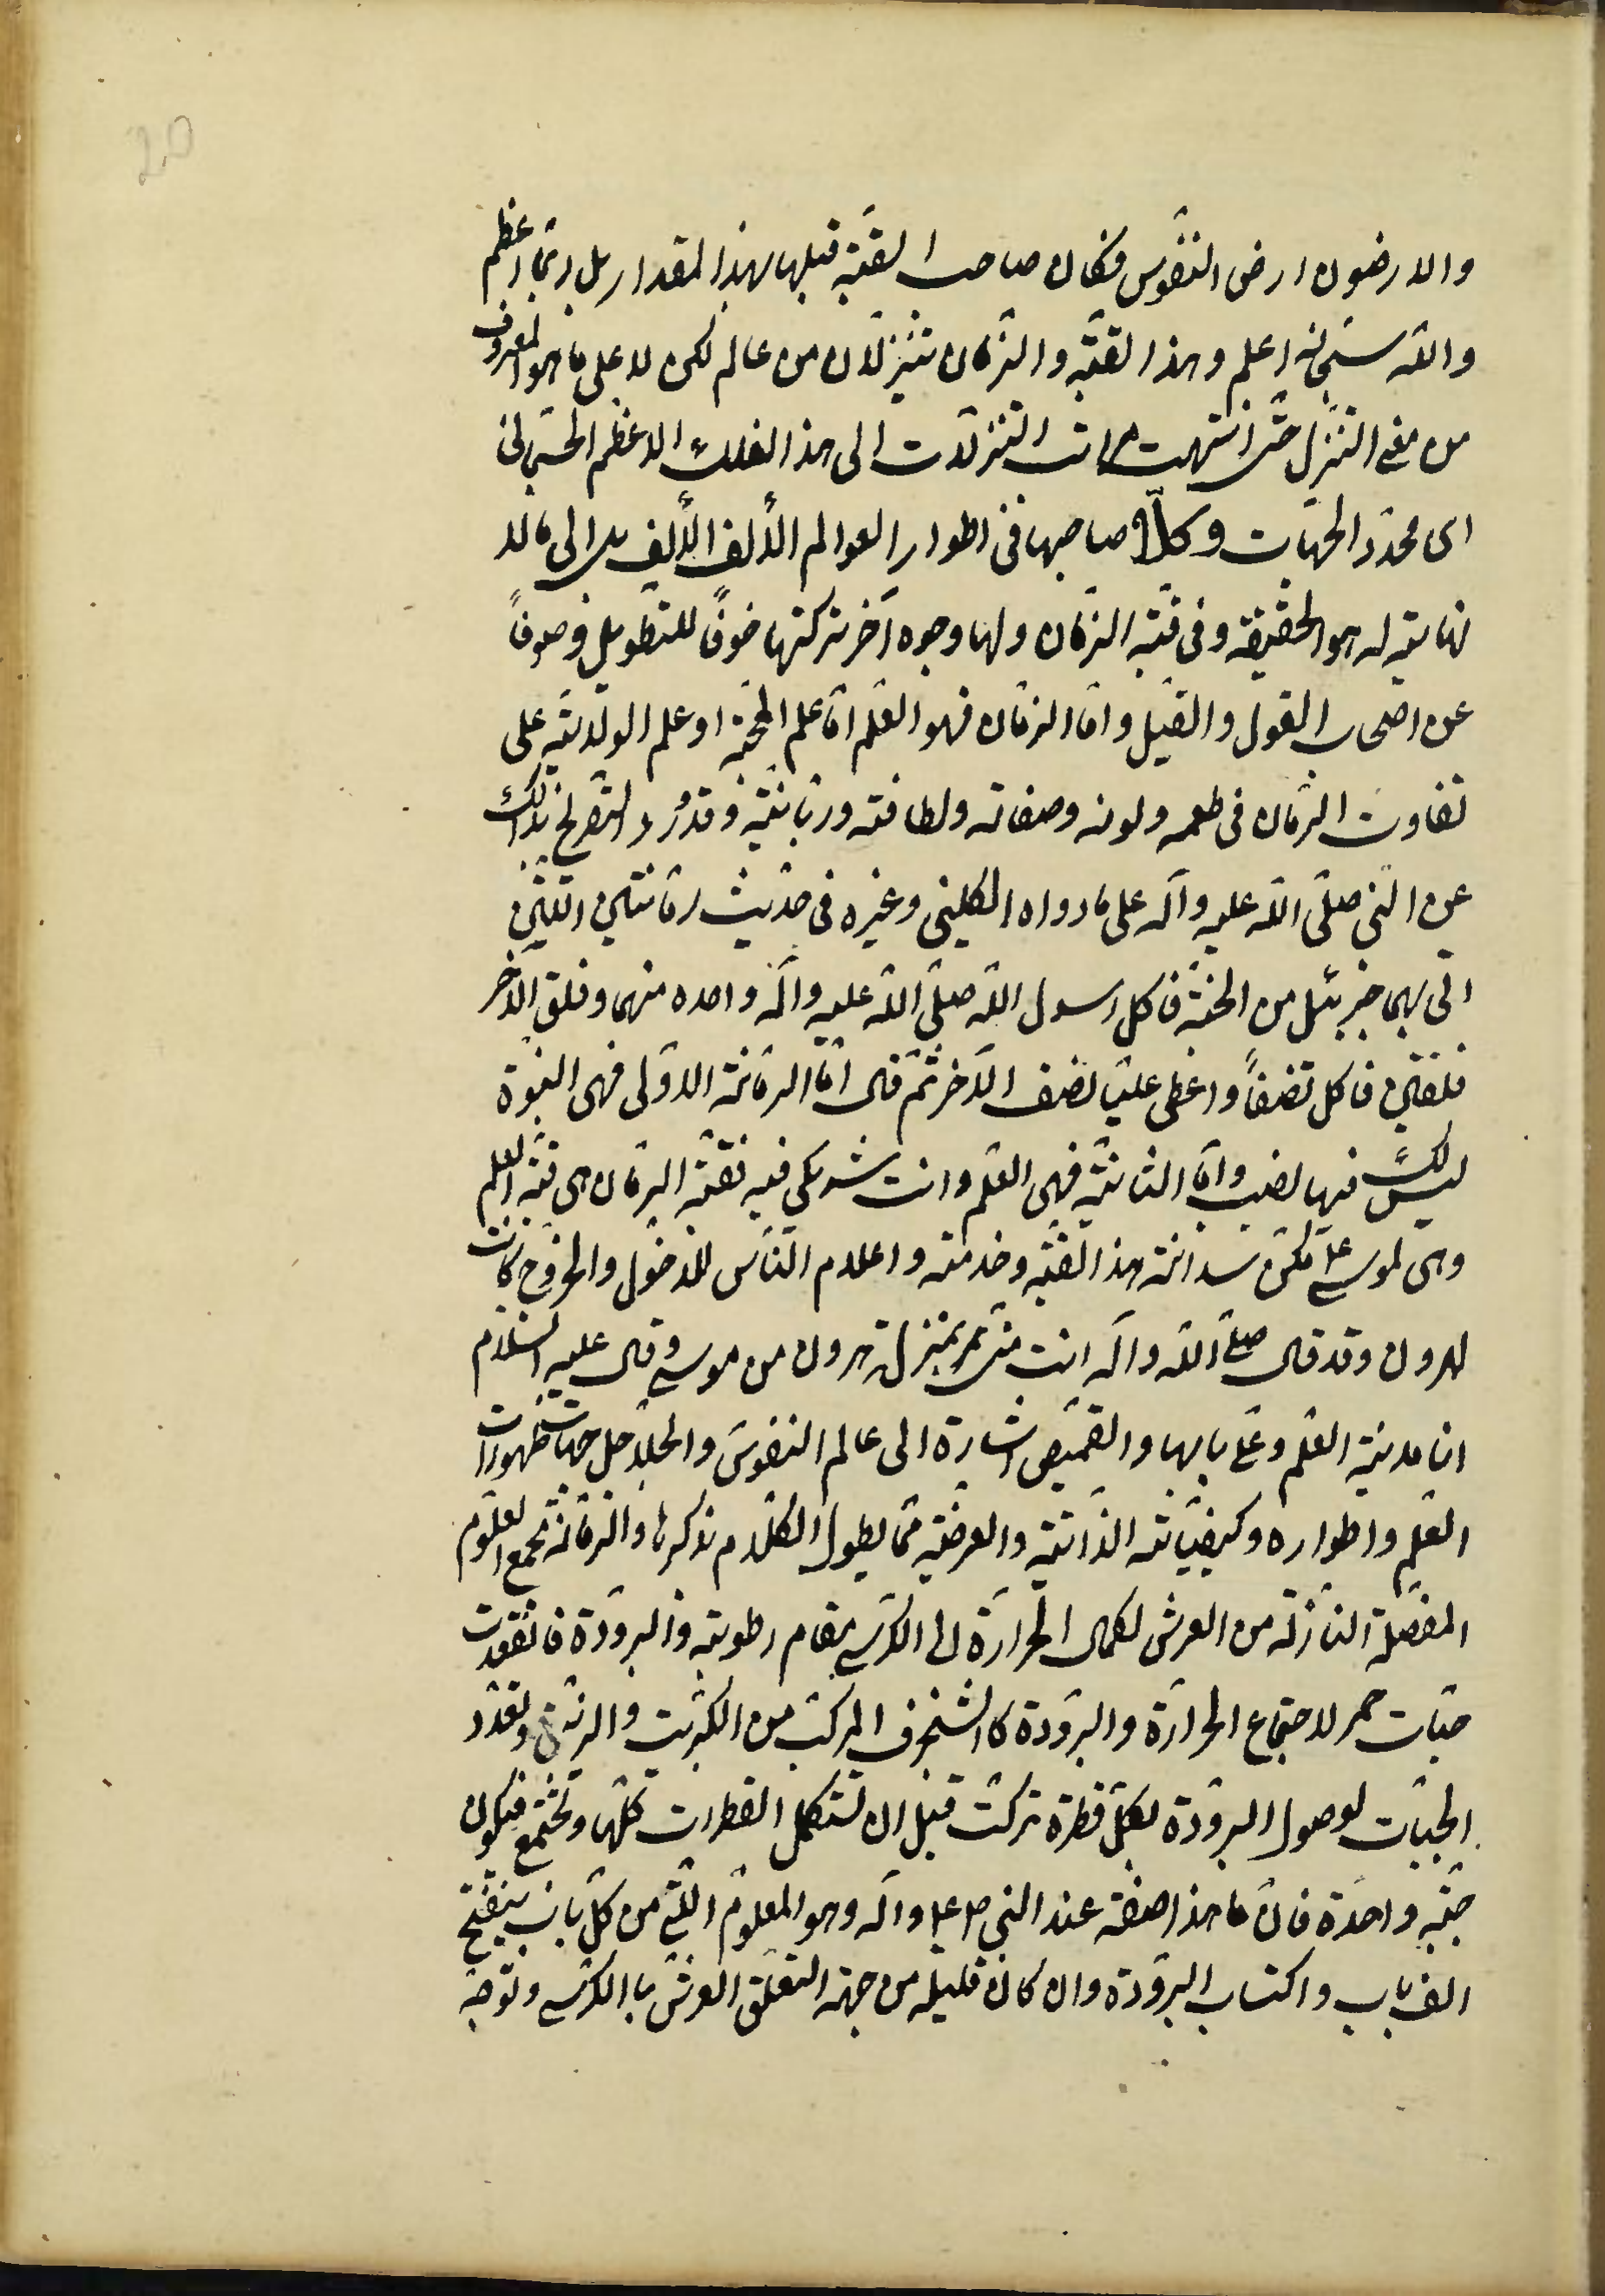 20
والارضون ارض النفوس فكان صاحب القبّة قبلها بهذا المقدار بل ربّما اعظم
واللّه سبحانه اعلم وهذا القبّة والرمّان تنزلان من عالم لكن لا على ما هو المعروف
من معنى التنزل حتّى انتهت مراتب التنزلات الى هذا الفلك الاعظم الجسمانى
اى محدّد الجهات وكلّا صاحبها فى اطوار العوالم الألف الألف بل الى ما لا
نهاية له هو الحقيقة وفى قبّة الرمّان ولها وجوه آخر تركتها خوفاً للتطويل وصوناً
عن اصحاب القول والقيل وامّا الرمّان فهو العلم امّا علم المحبّة او علم الولاية على
تفاوت الرمّان فى طعمه ولونه وصفاته ولطافته ورمّانيّته وقد ورد التصريح بذلك
عن النّبى صلّى اللّه عليه وآله على ما رواه الكلينى وغيره فى حديث رمّانتين اللتين
اتى بهما جبرئيل من الجنّة فاكل رسول اللّه صلّى اللّه عليه وآله واحده منهما وفلق الآخر
فلقتين فاكل نصفاً واعطى عليّا نصف الآخر ثم قال امّا الرمّانة الاولى فهى النبوّة
ليس لك فيها نصيب وامّا الثانية فهى العلم وانت شريكى فيه فقبّة الرمّان هى قبّة العلم
وهى لموسى ع لكن سدانة هذا القبّة وخدمته واعلام النّاس للدخول والخروج كانت
لهرون وقد قال صلى اللّه وآله انت منّى بمنزلة هرون من موسى وقال عليه السّلام
انا مدينة العلم وعلى بابها والقميص اشارة الى عالم النفوس والجلاجل جهات ظهورات
العلم واطواره وكيفيّاته الذّاتية والعرضيّة ممّا يطول الكلام بذكرها والرمّانة مجمع العلوم
المفصّلة النازلة من العرش لكمال الحرارة الى الكرسى بمقام رطوبته والبرودة فانعقدت
حبّات حمر لاجتماع الحرارة والبرودة كالشنجرف المركب من الكبريت والزيبق وتعدّد
الحبّات لوصول البرودة لكلّ قطرة تركت قبل ان تستكمل القطرات كلّها وتجتمع فيكون
حبّة واحدة فان ما هذا صفته عند النبى ص ع وآله وهو المعلوم التى من كلّ باب ينفتح
الف باب واكتساب البرودة وان كان قليله من جهة التعلق العرش باالكرسى وتوجّه